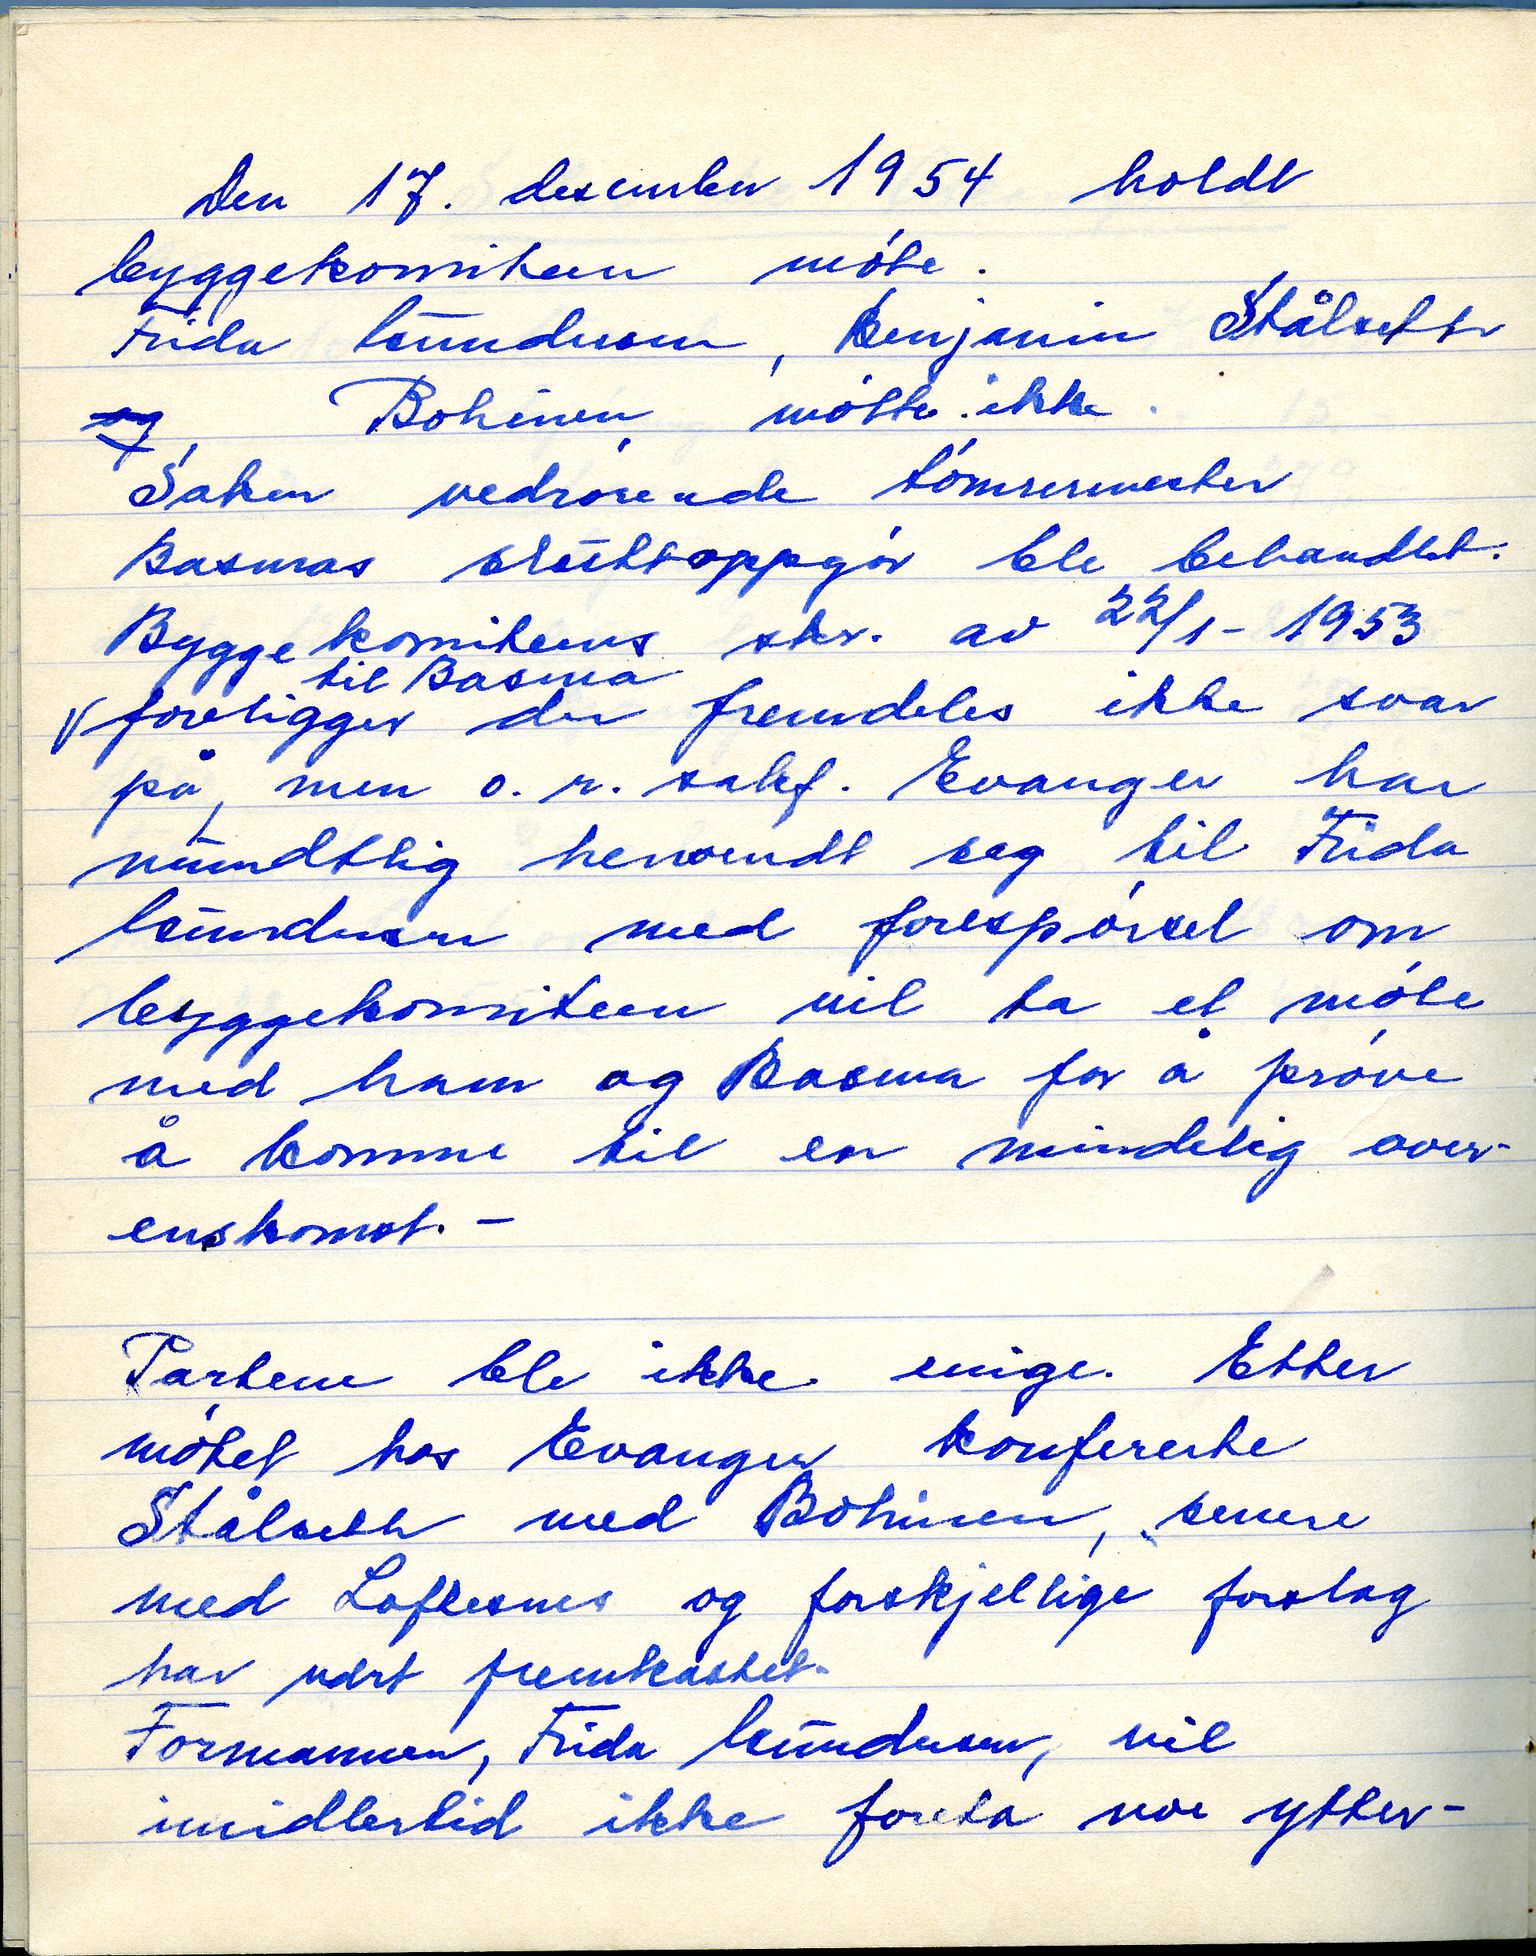 Den 17. desember 1954 holdt
byggekomiteen møte.
Frida Gundersen, Benjamin Stålseth
og Bohinen møtte ikke.
Saken vedrørende tømrermester
Basmas sluttoppgjør ble behandlet.
Byggekomiteens skr. av 22/1 - 1953
til Basma
foreligger der fremdeles ikke svar
på, men o. r. sakf. Evanger har
mundtlig henvendt seg til Frida
Gundersen med forespørsel om
byggekomiteen vil ta et møte
med ham og Basma for å prøve
å komme til en mindelig over-
enskomst. -
Partene ble ikke enige. Etter
møtet hos Evanger konfererte
Stålseth med Bohinen, senere
med Loftesnes og forskjellige forslag
har vært fremkastet.
Formannen, Frida Gundersen, vil
imidlertid ikke foreta noe ytter-